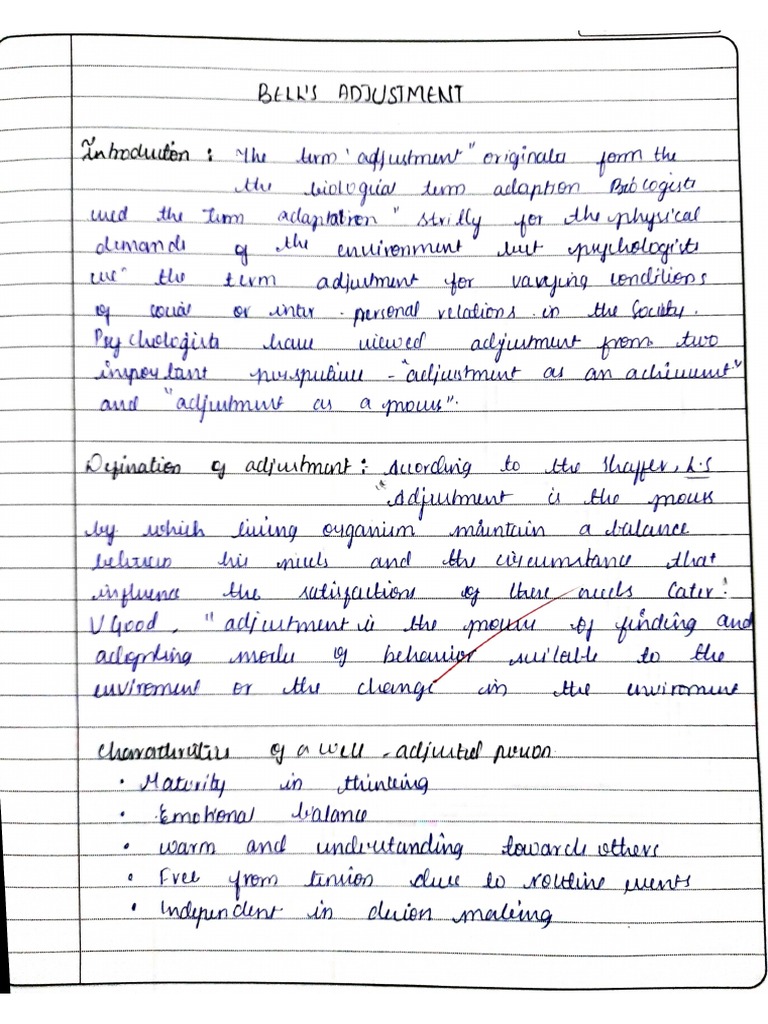 BELL'S ADJUSTMENT
Introduction : The term 'adjustment" originals form the
the biological term adaption Biologists
used the term adaptation" strilly for the physical
demands of the environment but psychologists
use the term adjustment for varying conditions
of social or inter - personal relations in the Society.
Psychologists have viewed adjustment from two
important perspective - "adjustment as an achievement"
and "adjustment as a process".
Defination of adjustment : According to the Shaffer, L.S
"Adjustment is the process
by which living organism maintain a balance
between his needs and the circumstance that
influence the satisfactions of these needs Cater :
V Good , "adjustment is the process of finding and
adopting modes of behavior suitable to the
envirement or the change in the envirement
Characteristics of a well - adjusted person
• Maturity in thinking
• Emotional balance
• warm and understanding towards others
• Free from tension due to routine events
• Independent in decion making